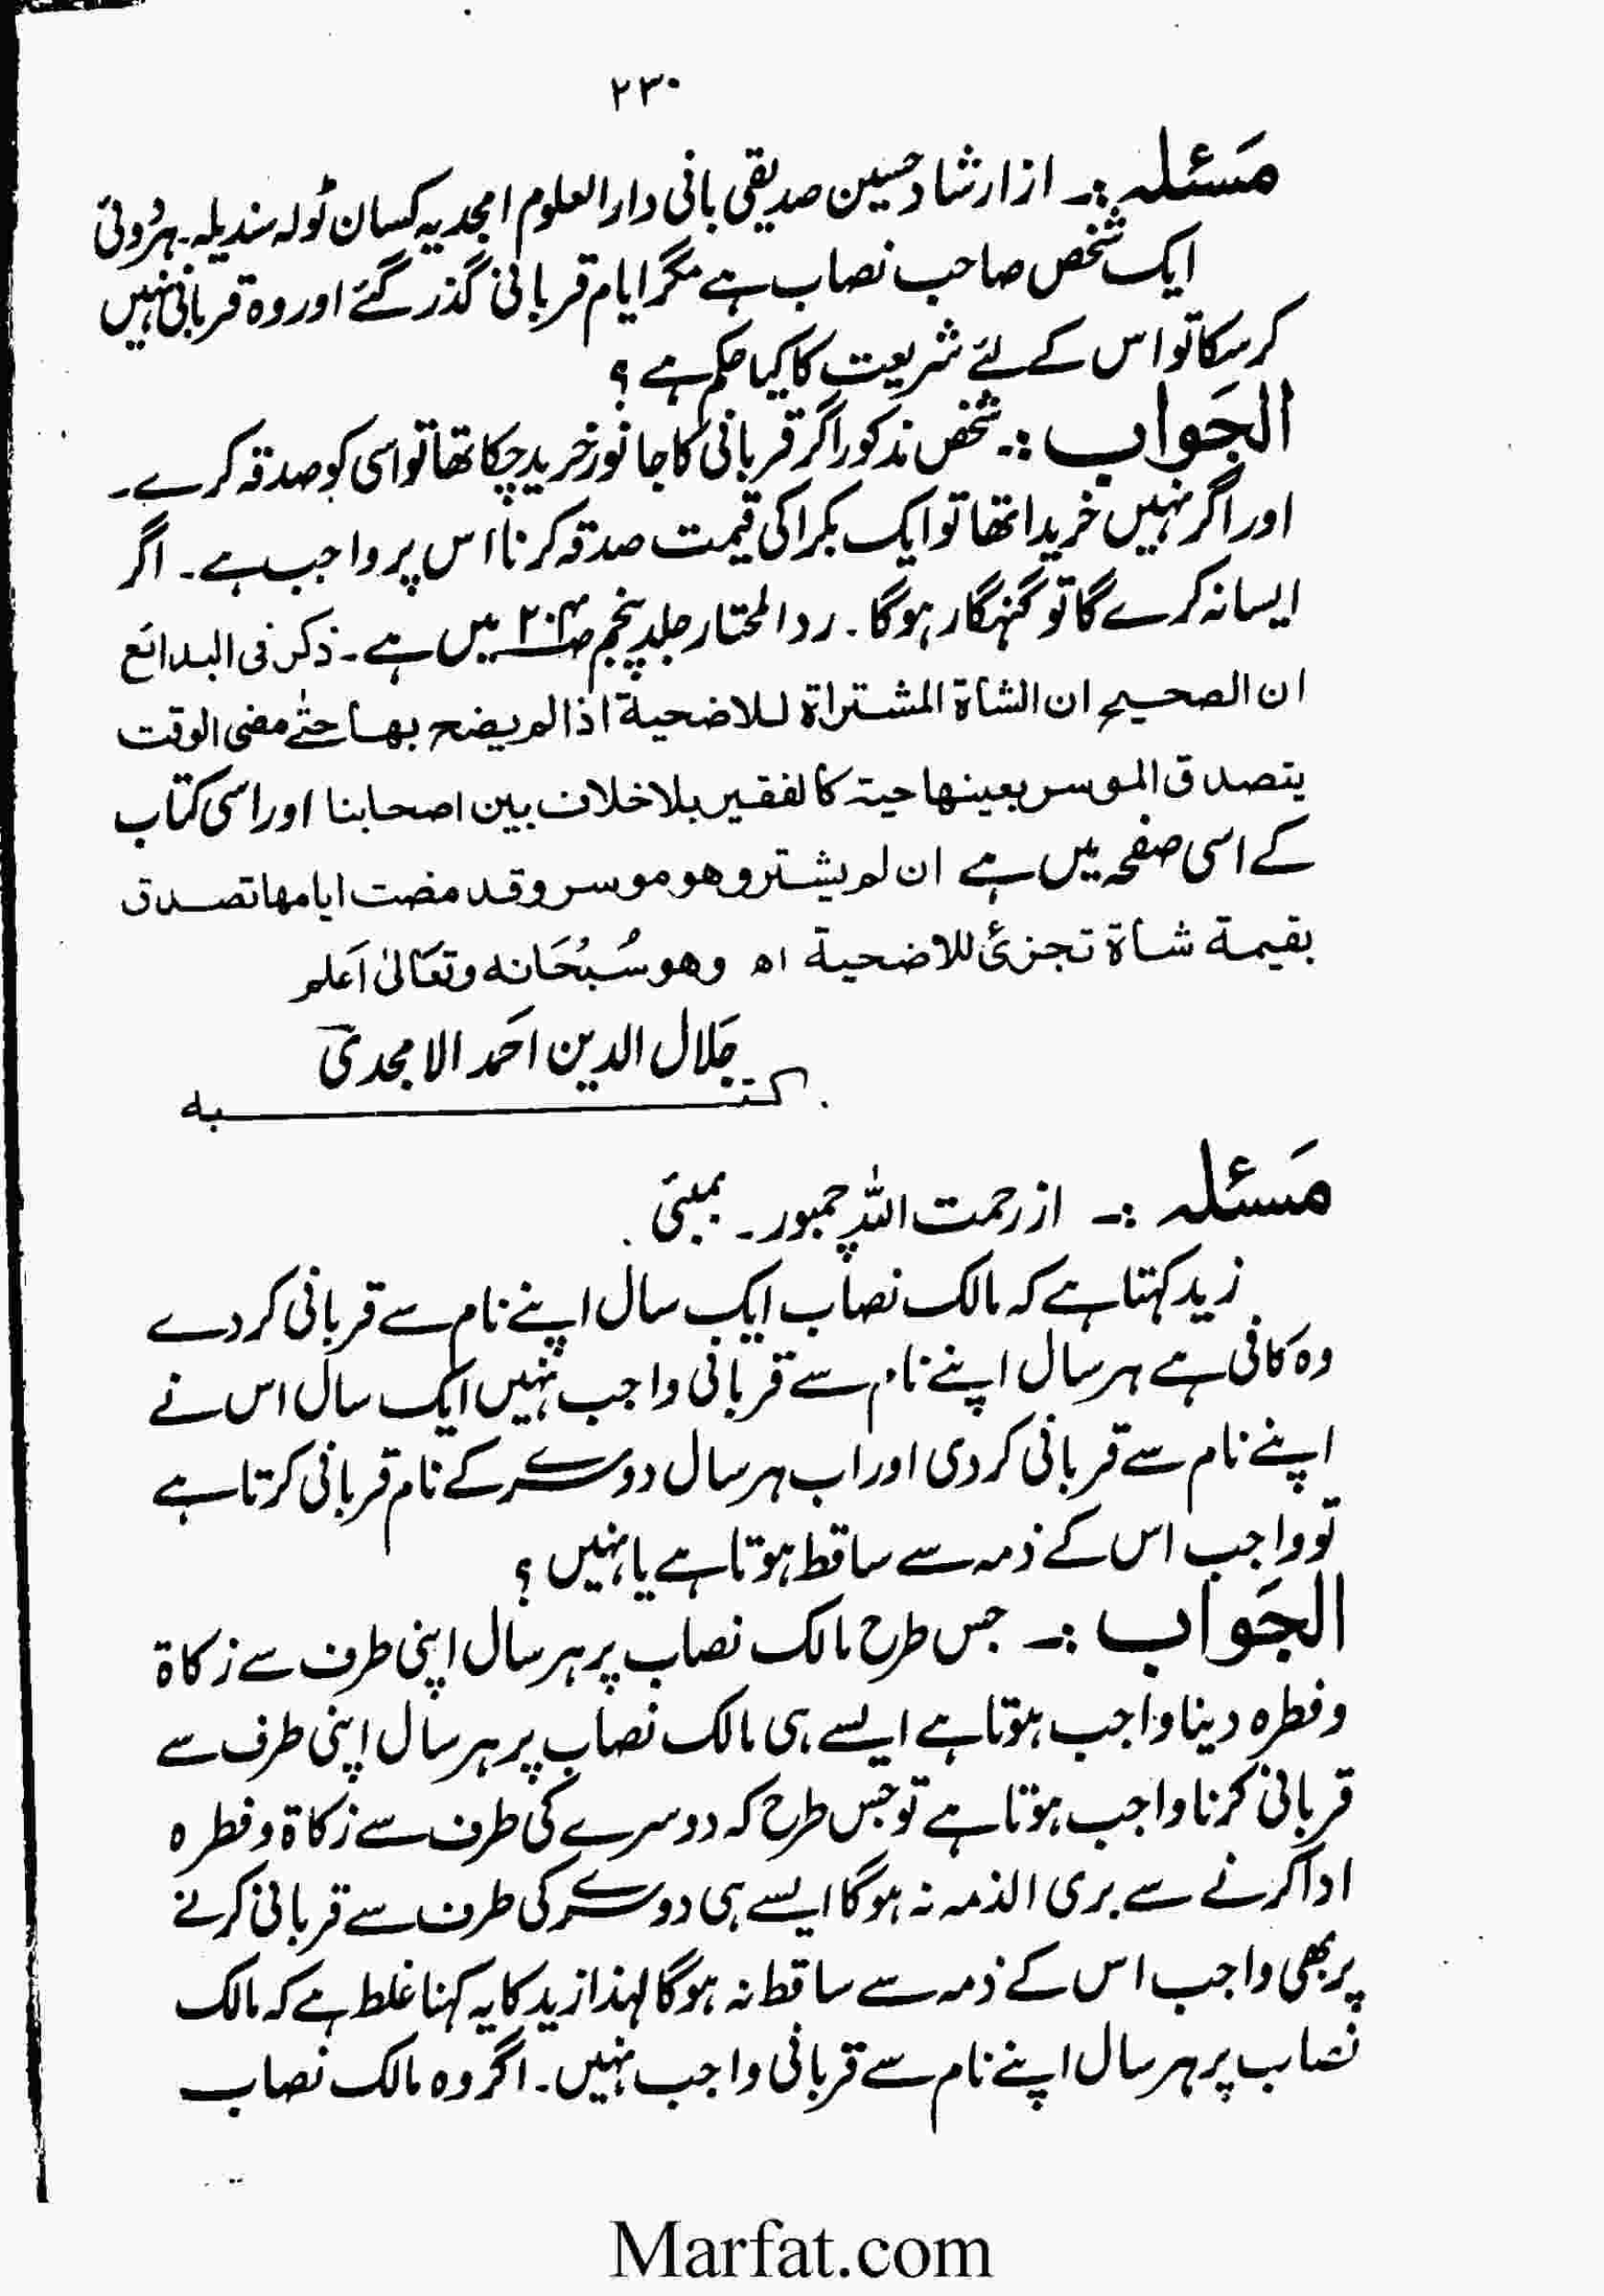 ۲۳۰
مَسْئلہ :۔ از ارشاد حسین صدیقی بانی دارالعلوم امجدیہ کسان ٹولہ سندیلہ۔ ہردوئی
ایک شخص صاحب نصاب ہے مگر ایام قربانی گذر گئے اور وہ قربانی نہیں
کر سکا تو اس کے لئے شریعت کا کیا حکم ہے ؟
الجَواب :۔ شخص مذکور اگر قربانی کا جانور خرید چکا تھا تو اسی کو صدقہ کرے۔
اور اگر نہیں خریدا تھا تو ایک بکرا کی قیمت صدقہ کرنا اس پر واجب ہے۔ اگر
ایسا نہ کرے گا تو گنہگار ہوگا۔ رد المحتار جلد پنجم ص۲۰۴ میں ہے۔ ذکر فی البدائع
ان الصحیح ان الشاۃ المشتراۃ للاضحیۃ اذا لم یضح بھا حتٰی مضی الوقت
یتصدق الموسر بعینھا حیۃ کالفقیر بلا خلاف بین اصحابنا اور اسی کتاب
کے اسی صفحہ میں ہے ان لم یشتر وھو موسر وقد مضت ایامھا تصدق
بقیمۃ شاۃ تجزئ للاضحیۃ اھ وھو سُبْحَانہ وتعَالیٰ اَعلم
جَلال الدین احَمد الامجدی
کتبہ
مَسْئلہ :۔ از رحمت اللہ چمبور۔ بمبئی
زید کہتا ہے کہ مالک نصاب ایک سال اپنے نام سے قربانی کر دے
وہ کافی ہے ہر سال اپنے نام سے قربانی واجب نہیں ایک سال اس نے
اپنے نام سے قربانی کر دی اور اب ہر سال دوسرے کے نام قربانی کرتا ہے
تو واجب اس کے ذمہ سے ساقط ہوتا ہے یا نہیں ؟
الجَواب :۔ جس طرح مالک نصاب پر ہر سال اپنی طرف سے زکاۃ
و فطرہ دینا واجب ہوتا ہے ایسے ہی مالک نصاب پر ہر سال اپنی طرف سے
قربانی کرنا واجب ہوتا ہے تو جس طرح کہ دوسرے کی طرف سے زکاۃ و فطرہ
ادا کرنے سے بری الذمہ نہ ہوگا ایسے ہی دوسرے کی طرف سے قربانی کرنے
پر بھی واجب اس کے ذمہ سے ساقط نہ ہوگا لہذا زید کا یہ کہنا غلط ہے کہ مالک
نصاب پر ہر سال اپنے نام سے قربانی واجب نہیں۔ اگر وہ مالک نصاب
Marfat.com